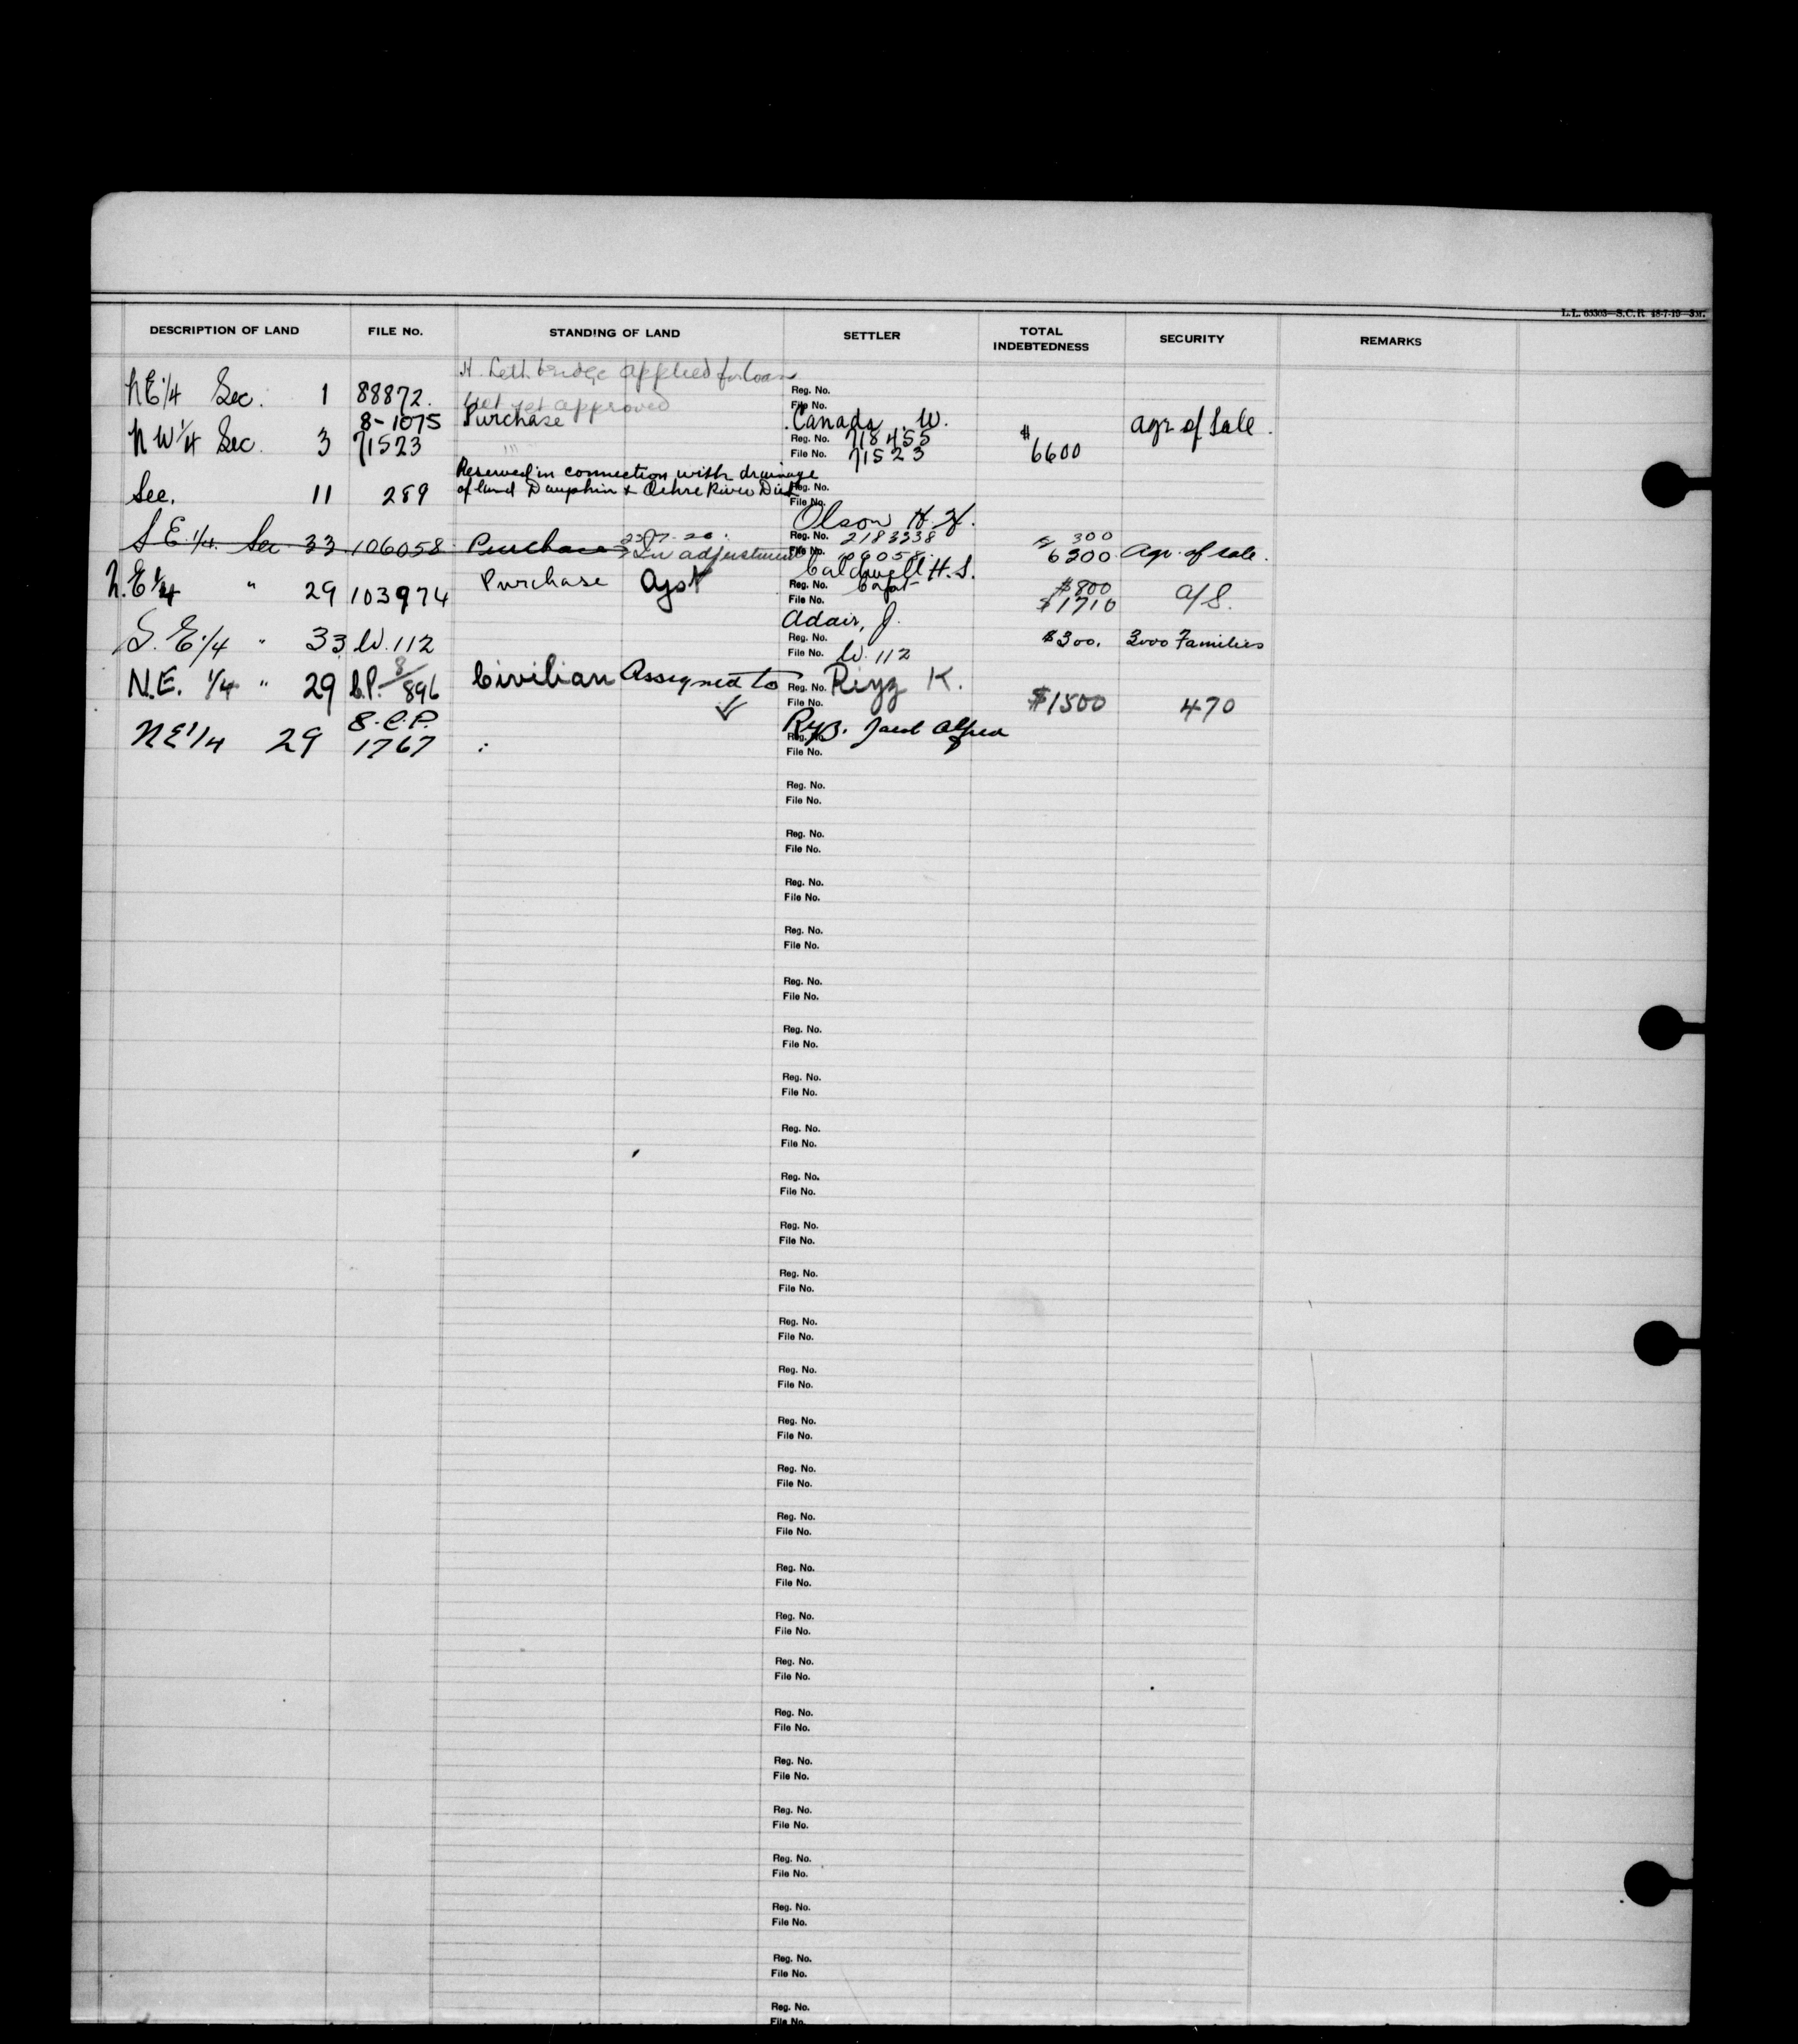 L.L. 65303—S.C.R. 48-7-19—3M.
DESCRIPTION OF LAND FILE No. STANDING OF LAND SETTLER TOTAL INDEBTEDNESS SECURITY REMARKS
H. Lethbridge applied for loan
NE 1/4 Sec. 1 88872. not yet approved Reg. No.
File No.
8-1075 Purchase Canada W. agr of Sale.
NW 1/4 Sec. 3 71523 Reg. No. 718455 $
File No. 71523 6600
Reserved in connection with drainage
Sec. 11 289 of land Dauphin & Ochre River Dist Reg. No.
File No.
Olson H.H.
S E 1/4 Sec 33 106058 Purchase 23/7-20. Reg. No. 2183338 300
In adjustment File No. 106058. 6300 Agr. of sale.
Caldwell H.S.
N.E 1/4 " 29 103974 Purchase Ajst Reg. No. Capt $800
File No. $1710 A/S.
Adair, J.
S. E 1/4 " 33 W. 112 Reg. No. $300. 3000 Families
File No. W. 112
N.E. 1/4 " 29 C.P. 8/896 Civilian Assigned to Reg. No. Riyz K.
File No. $1500 470
8-C.P. Alfred
NE 1/4 29 1767 Reg. No.
File No.
Reg. No.
File No.
Reg. No.
File No.
Reg. No.
File No.
Reg. No.
File No.
Reg. No.
File No.
Reg. No.
File No.
Reg. No.
File No.
Reg. No.
File No.
Reg. No.
File No.
Reg. No.
File No.
Reg. No.
File No.
Reg. No.
File No.
Reg. No.
File No.
Reg. No.
File No.
Reg. No.
File No.
Reg. No.
File No.
Reg. No.
File No.
Reg. No.
File No.
Reg. No.
File No.
Reg. No.
File No.
Reg. No.
File No.
Reg. No.
File No.
Reg. No.
File No.
Reg. No.
File No.
Reg. No.
File No.
Reg. No.
File No.